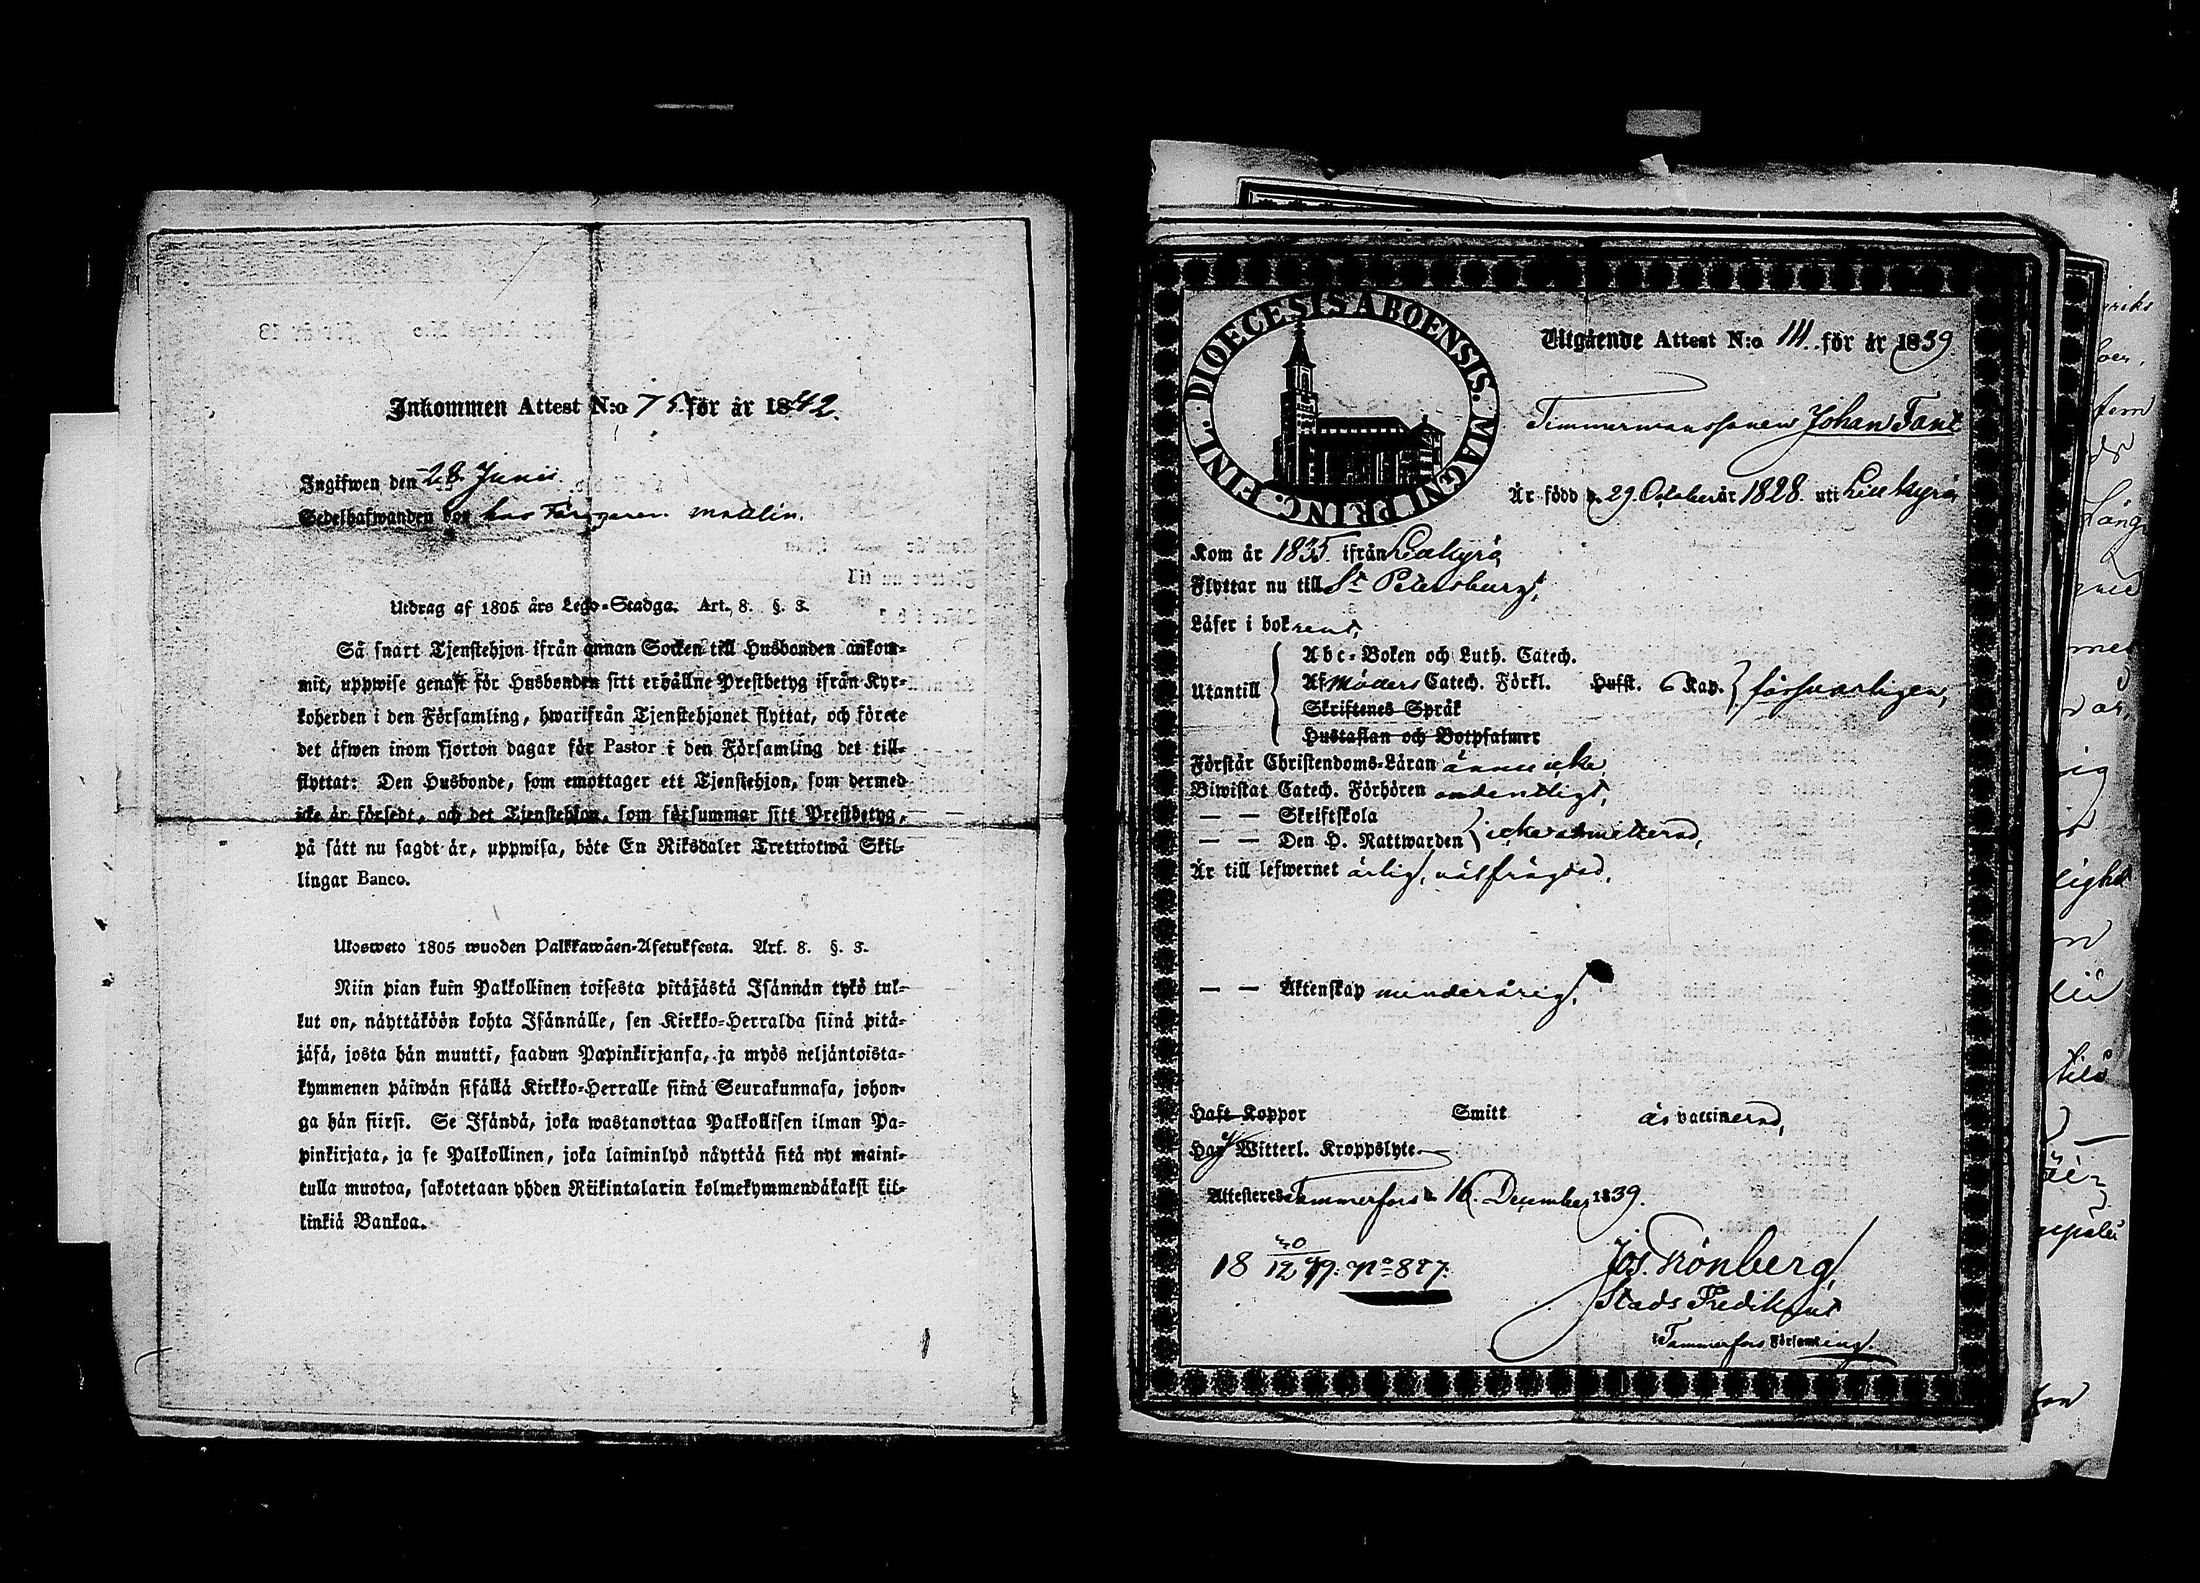 Inkommen Attest N:o 75. för år 1842.
Ingifwen den 28 Junii.
Sedelhafwanden bor hos Färgaren
Utdrag af 1805 års Lego-Stadga. Art. 8. §. 3.
Så snart Tjenstehjon ifrån annan Socken till Husbonden ankom-
mit, uppwise genast för Husbonden sitt erhållne Prestbetyg ifrån Kyr-
koherden i den Församling, hwarifrån Tjenstehjonet flyttat, och förete
det äfwen inom fjorton dagar för Pastor i den Församling det till-
flyttat: Den Husbonde, som emottager ett Tjenstehjon, som dermed
icke är försedt, och det Tjenstehjon, som försummar sitt Prestbetyg,
på sätt nu sagdt är, uppwisa, böte En Riksdaler Trettiotwå Skil-
lingar Banco.
Ulosweto 1805 wuoden Palkkawäen-Asetuksesta. Art. 8. §. 3.
Niin pian kuin Palkollinen toisesta pitäjästä Isännän tykö tul-
lut on, näyttäköön kohta Isännälle, sen Kirkko-Herralda siinä pitä-
jäsä, josta hän muutti, saadun Papinkirjansa, ja myös neljäntoista-
kymmenen päiwän sisällä Kirkko-Herralle siinä Seurakunnasa, johon-
ga hän siirsi. Se Isändä, joka wastanottaa Palkollisen ilman Pa-
pinkirjata, ja se Palkollinen, joka laiminlyö näyttää sitä nyt maini-
tulla muotoa, sakotetaan yhden Riikintalarin kolmekymmendäkaksi kil-
linkiä Bankoa.
DIOECESIS ABOENSIS. MAGNI PRINC. FINL.
Utgående Attest N:o 111. för år 1839.
Timmermanssonen Johan
Är född d. 29. October år 1828. uti Lillkyro
Kom år 1835. ifrån Lillkyro,
Flyttar nu till St Petersburg,
Läser i bok rent,
Abc-Boken och Luth. Catech.
Utantill Af Möllers Catech. Förkl. Husst. 6 Kap. försvarligen,
Skriftenes Språk
Hustaflan och Botpsalmer
Förstår Christendoms-Läran ännu icke
Biwistat Catech. Förhören ordentligt,
— — Skriftskola
— — Den H. Nattwarden icke admitterad,
Är till lefwernet ärlig, välfrägdad,
— — Äktenskap minderårig,
Haft Koppor Smitt är vaccinerad,
Har ej Witterl. Kroppslyte.
Attesteres Tammerfors d. 16. December 1839.
18 30/12 39. No 887.
Jos. Grönberg,
Stads Predikant
i Tammerfors Församling.